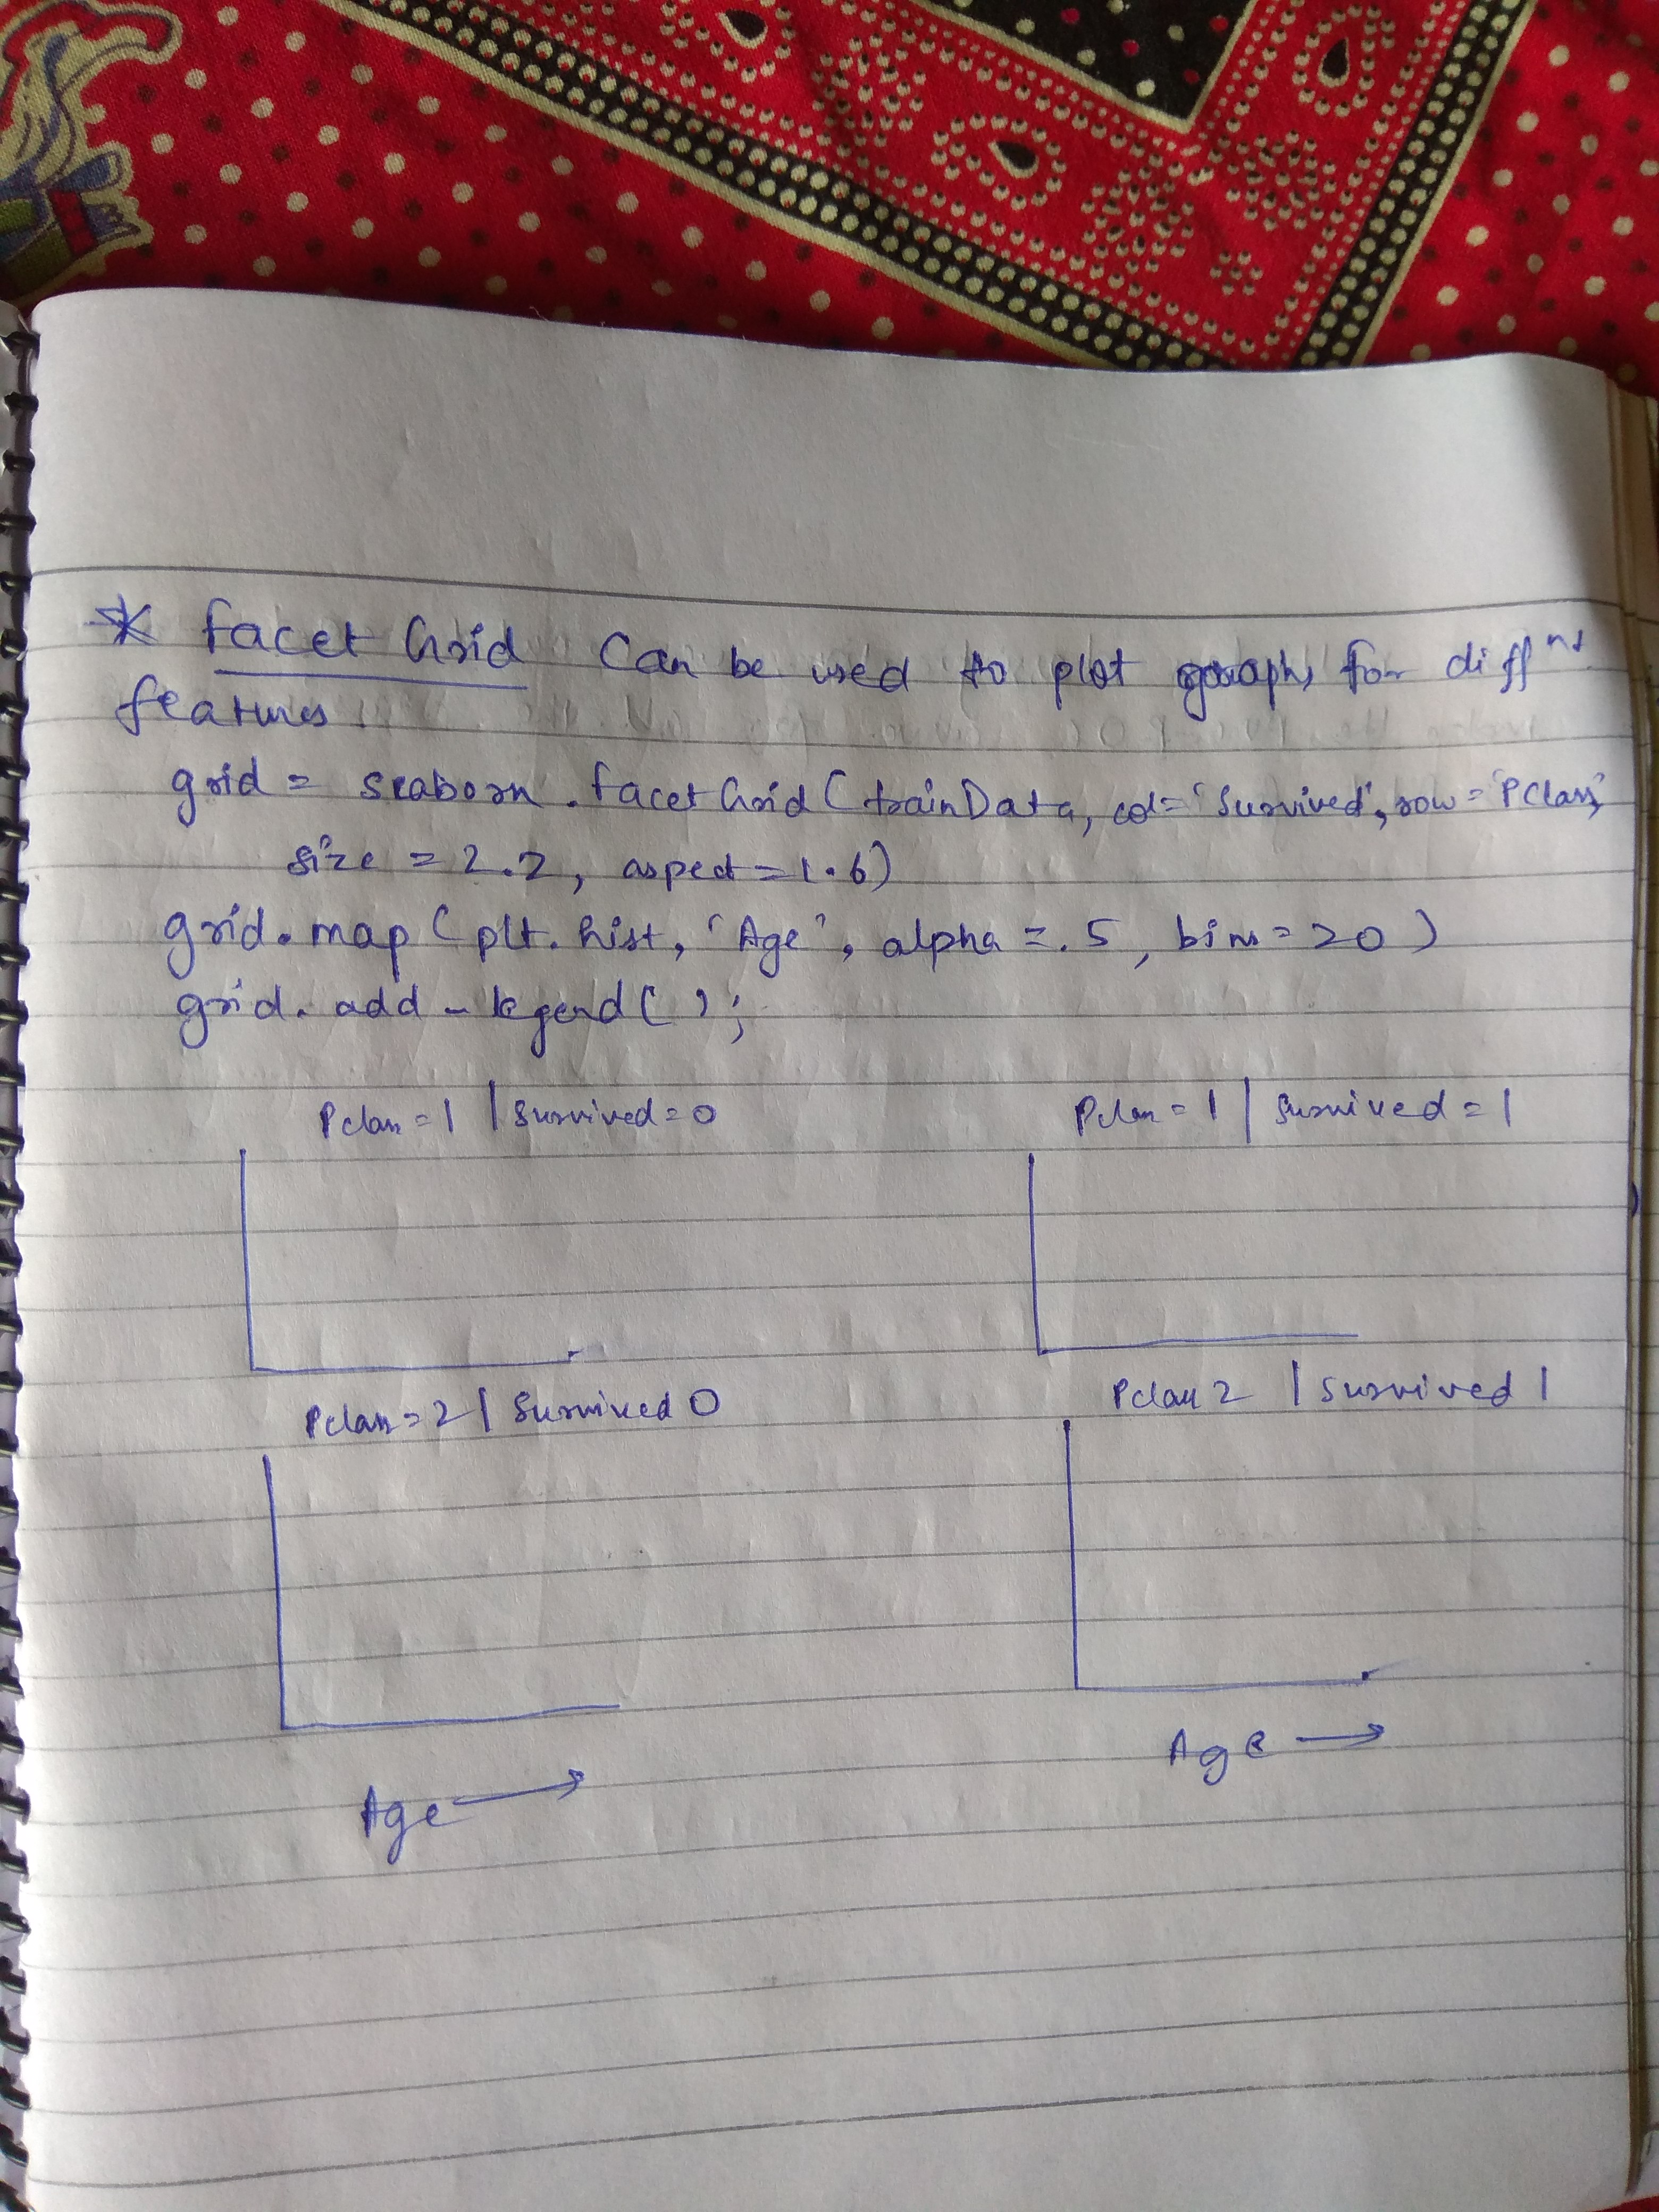 * Facet Grid Can be used to plot graphs for diffnt
features.
grid = seaborn.FacetGrid(trainData, col='Survived', row='PClass',
size = 2.2, aspect=1.6)
grid.map(plt.hist, 'Age', alpha=.5, bins=20)
grid.add_legend();
Pclass=1 | Survived=0
Pclass=1 | Survived=1
Pclass=2 | Survived 0
Pclass 2 | Survived 1
Age →
Age →